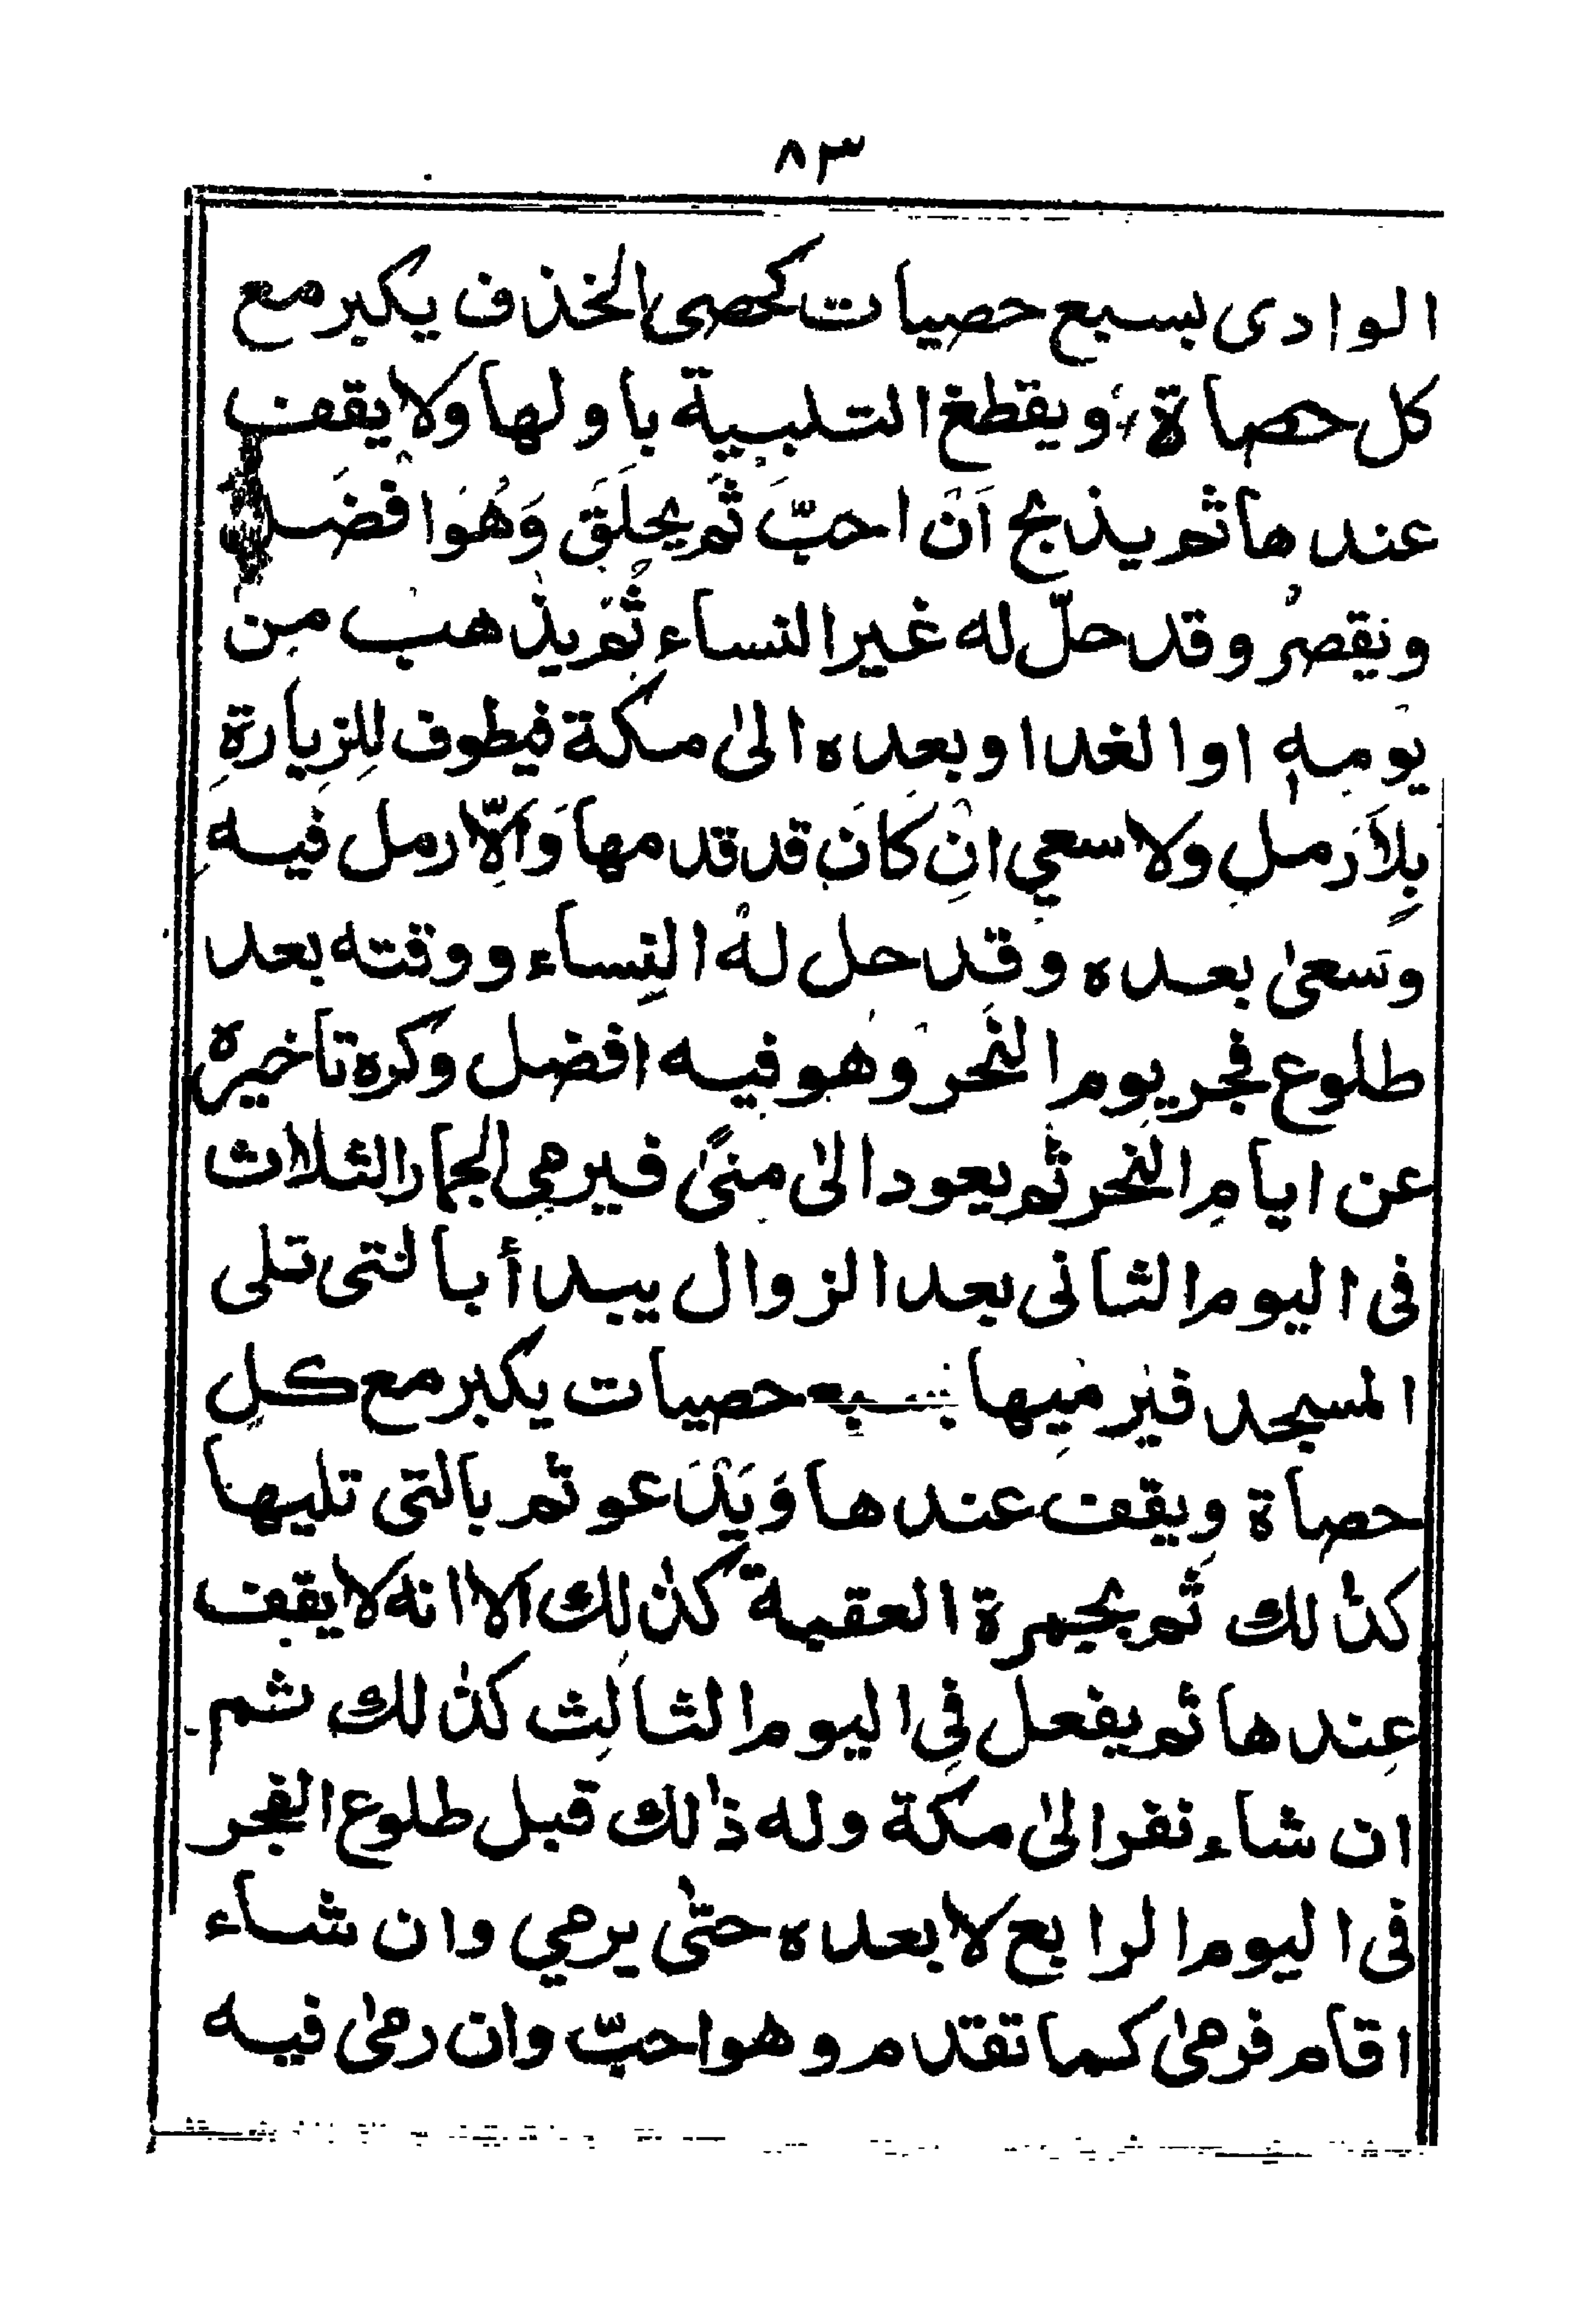 ٨٣
الوادى بسبع حصيات كحصى الخذف يكبر مع
كل حصاة ويقطع التلبية باولها ولا يقف
عندها ثم يذبح اَنْ احبّ ثَم يحلَقَ وَهُوَا فضَل
ونقصرُ وقد حلّ له غير النساء ثُمَّ يذهب مِن
يوْمهٖ او الغد او بعده الىٰ مكة فيطوف لِلزيارةِ
بِلاَ رَمل ولا سعي انِ كانَ قد قدمها وَاِلّا رمل فيه
وسَعىٰ بعده وقد حل لهْ النِساء ووقته بعد
طلوع فجر يوم النَحر وهو فيه افضل وكره تاخيره
عن ايامِ النحر ثم يعود الىٰ مِنىً فيرمي الجمار الثلاث
فى اليوم الثانى بعد الزوال يبدأ بالتى تلى
المسجد فيَرْمِيها بسبع حصيات يكبر مع كل
حصاة ويقف عندها وَيَدْعو ثم بالتى تليها
كذٰلك ثم بجمرة العقبة كذٰلِك الا انه لا يقف
عِندها ثم يفعل فِى اليوم الثالِث كذٰلك ثم
ان شاء نفر الىٰ مكة وله ذٰلك قبل طلوع الفجر
فى اليوم الرابع لا بعده حتّٰى يرمي وان شاء
اقام فرمىٰ كما تقدم وهو احبّ وان رمىٰ فيه